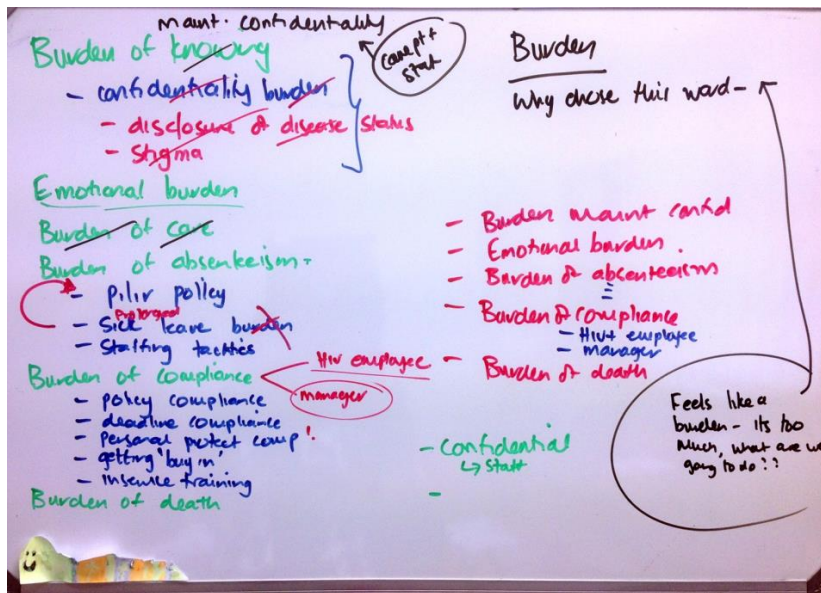 maint. confidentiality
Burden of knowing
care pt + staff
- confidentiality burden
- disclosure of disease status
- Stigma
Emotional burden
Burden of care
Burden of absenteeism -
- pilir policy
Prolonged
- Sick leave burden
- Staffing tactics
Burden of compliance
Hiv employee
manager
- policy compliance
- deadline compliance
- personal protect comp!
- getting 'buy in'
- inservice training
Burden of death
Burden
Why chose this word -
- Burden maint confid
- Emotional burden.
- Burden of absenteeism
- Burden of compliance
- HIV+ employee
- manager
- Burden of death
- Confidential
↳ Staff
-
Feels like a
burden - its too
much, what are we
going to do??